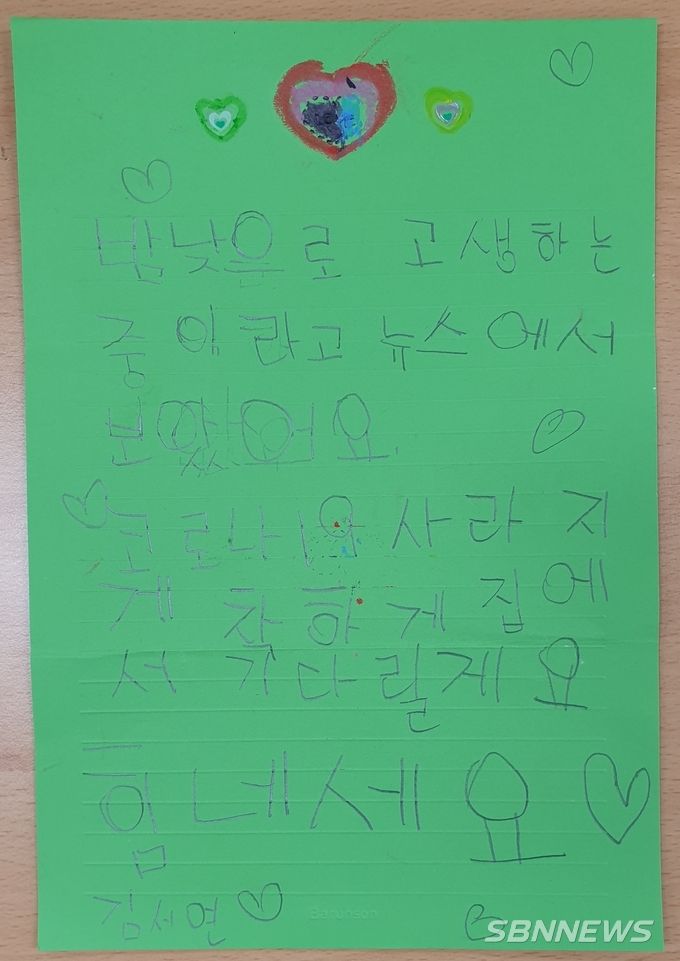 밤낮으로 고생하는
중이라고 뉴스에서
보았어요.
코로나19 사라지
게 착하게 집에
서 기다릴게요
힘네세요
김서연
Barunson
SBNNEWS